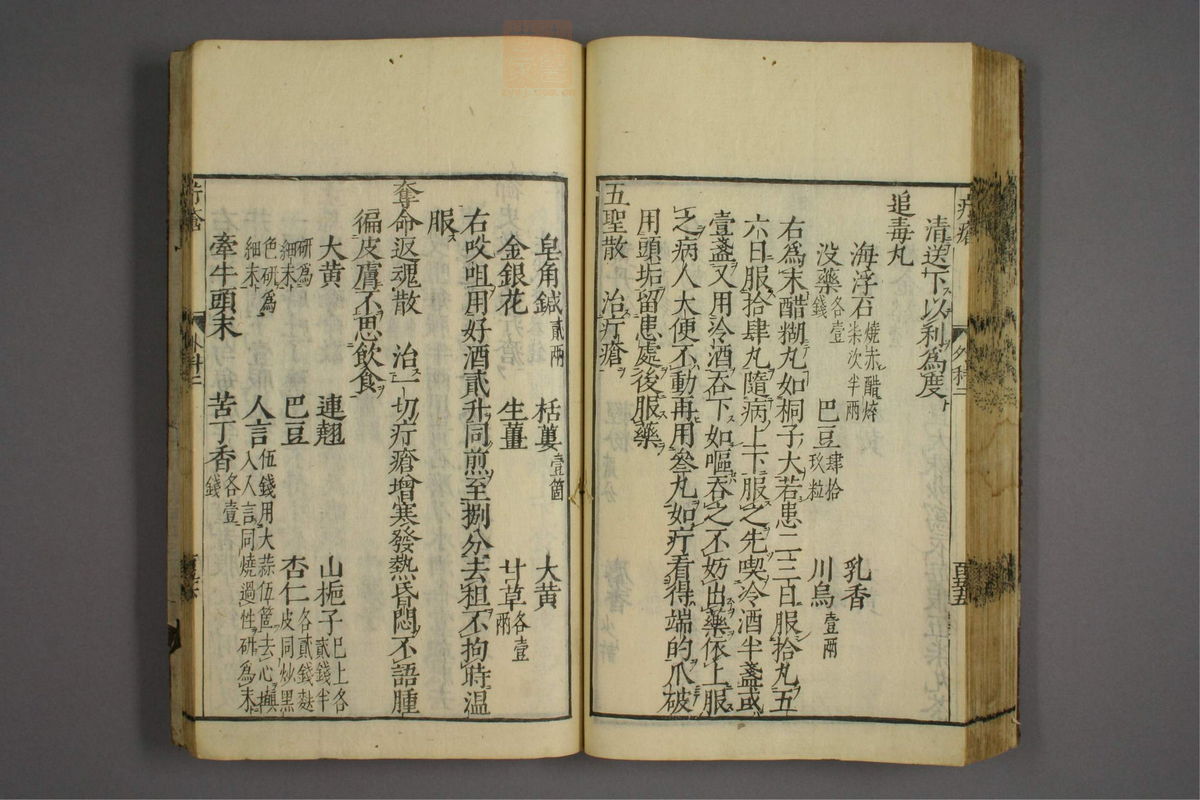 疔瘡
外科二
百五五
清送下以利為度
追毒丸
海浮石燒赤醋焠柒次半兩
乳香
没藥各壹錢
巴豆肆拾玖粒
川烏壹兩
右為末醋糊丸如桐子大若患二三日服拾丸五
六日服拾肆丸隨病上下服之先喫冷酒半盞或
壹盞又用冷酒吞下如嘔吞之不妨出藥依上服
之病人大便不動再用叄丸如疔看得端的爪破
用頭垢留患處後服藥
五聖散 治疔瘡
皂角鍼貳兩
栝蔞壹箇
大黄
金銀花
生薑
甘草各壹兩
右㕮咀用好酒貳升同煎至捌分去柤不拘時温
服
奪命返魂散 治一切疔瘡增寒發熱昏悶不語腫
徧皮膚不思飲食
大黄
連翹
山梔子巳上各貳錢半
研為細末
巴豆
杏仁各貳錢麩皮同炒黒
色研為細末
人言伍錢用大蒜伍箇去心
入人言同燒過性研為末
牽牛頭末
苦丁香各壹錢
疔瘡
外科二